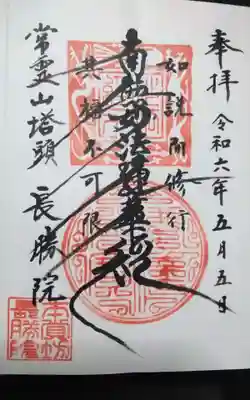 奉拝
令和六年五月五日
如説而修行
南無妙法蓮華経
其福不可限
常霊山塔頭
長勝院